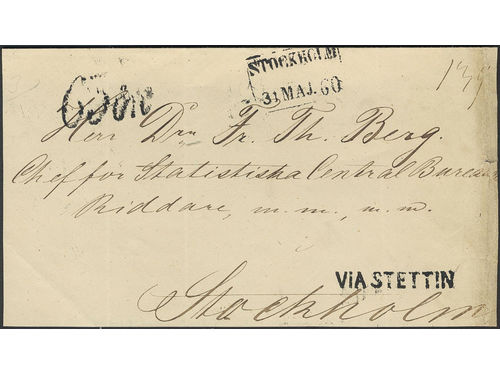 STOCKHOLM
31 MAJ. 60
Herr Dr Fr. Th. Berg.
Chef för Statistiska Central Bureau
Riddare, m.m., m.m.
VIA STETTIN
Stockholm